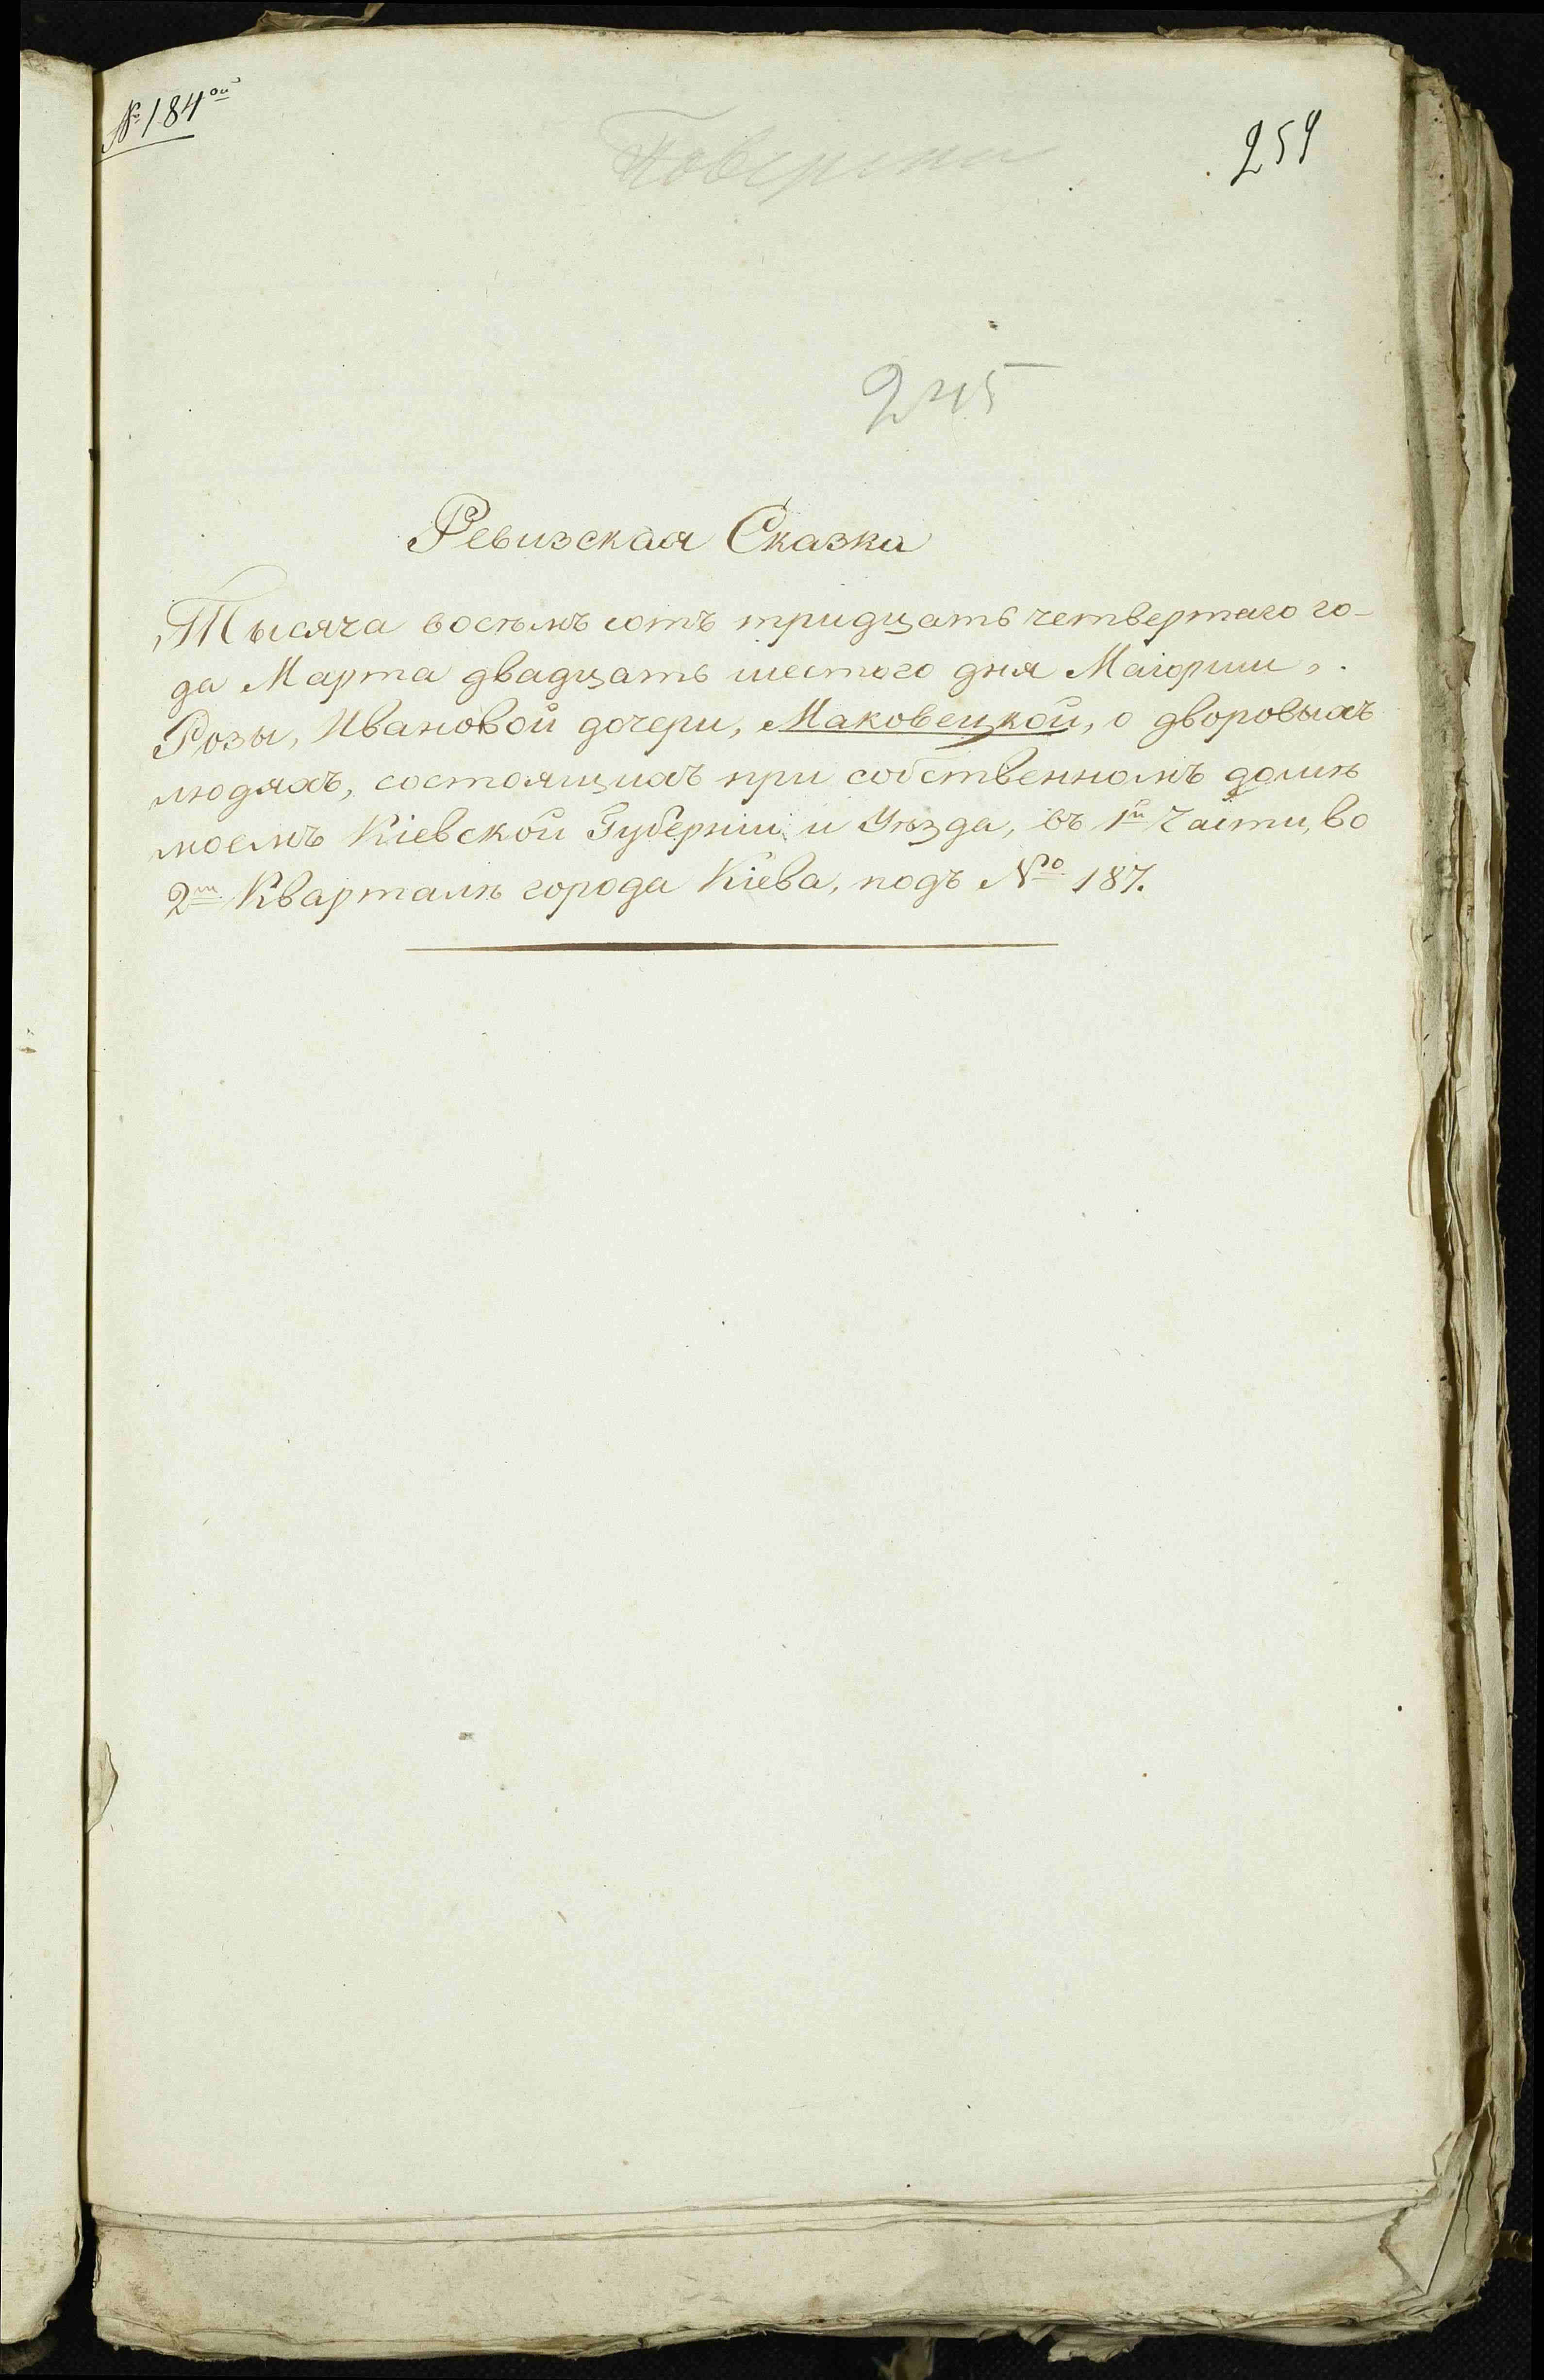 № 184ой
259
245
Ревизская Сказка
Тысяча восемь сотъ тридцать четвертаго го-
да Марта двадцать шестого дня Маіорши,
Розы, Ивановой дочери, Маковецкой, о дворовыхъ
людяхъ, состоящихъ при собственномъ домѣ
моемъ Кіевской Губерніи и Уѣзда, въ 1й Части, во
2м Кварталѣ города Кіева, подъ №о 187.